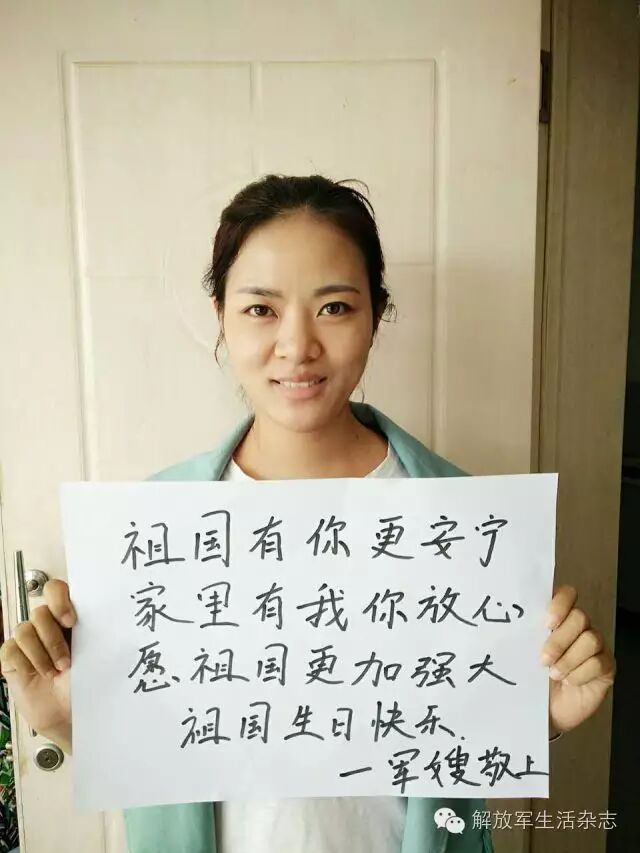 祖国有你更安宁
家里有我你放心
愿祖国更加强大
祖国生日快乐.
一军嫂敬上
解放军生活杂志